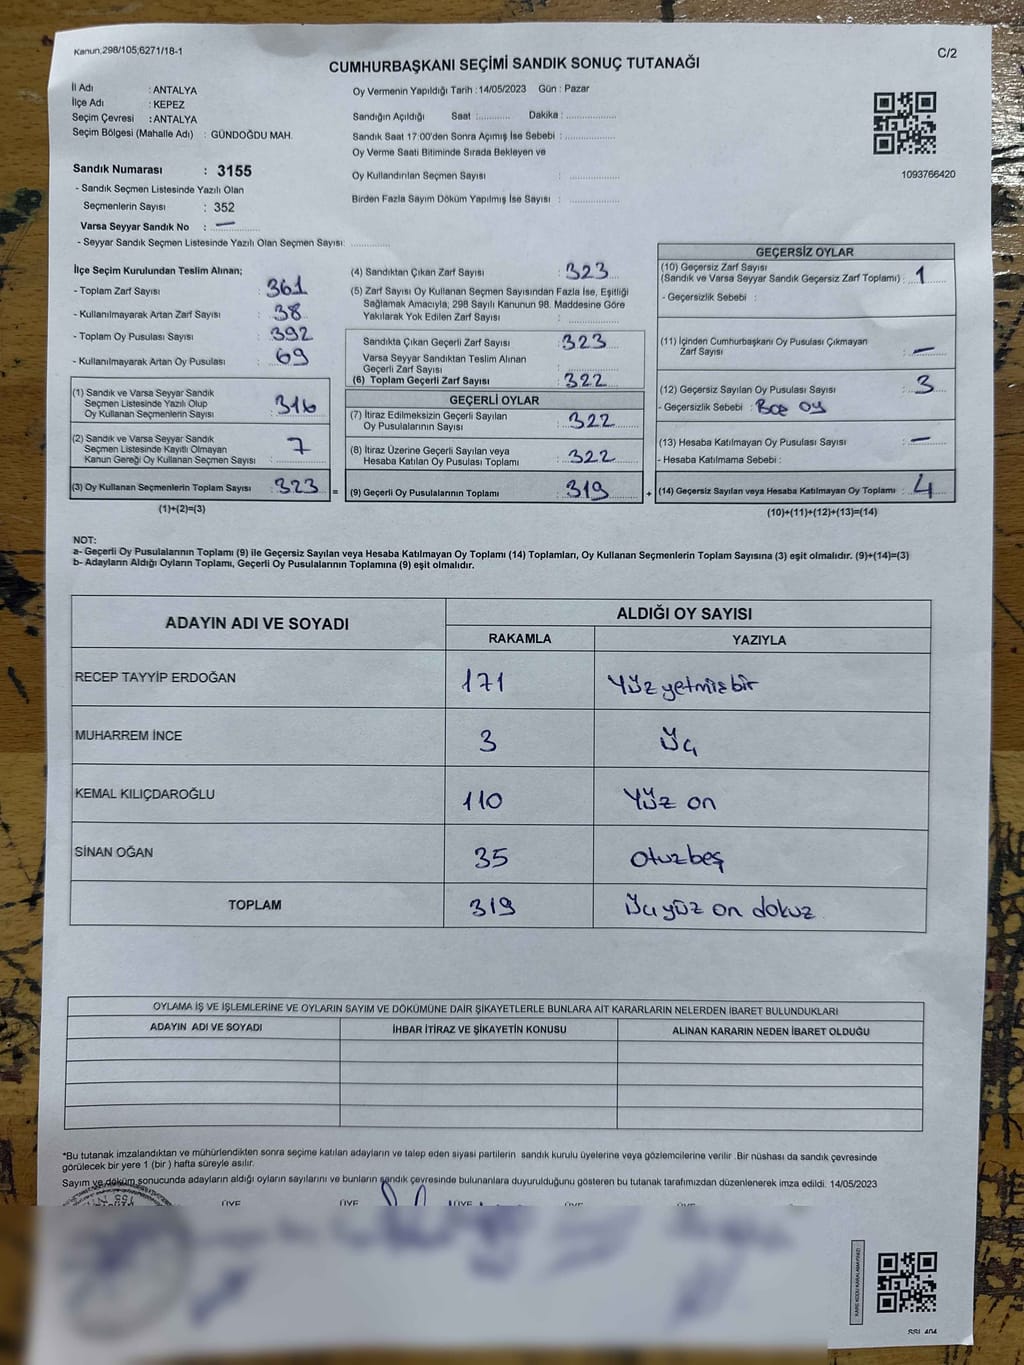 Kanun,298/105,6271/18-1
C/2
CUMHURBAŞKANI SEÇİMİ SANDIK SONUÇ TUTANAĞI
İl Adı : ANTALYA
İlçe Adı : KEPEZ
Seçim Çevresi : ANTALYA
Seçim Bölgesi (Mahalle Adı) : GÜNDOĞDU MAH.
Oy Vermenin Yapıldığı Tarih : 14/05/2023 Gün : Pazar
Sandığın Açıldığı Saat :........... Dakika :................
Sandık Saat 17:00'den Sonra Açımış İse Sebebi :................
Oy Verme Saati Bitiminde Sırada Bekleyen ve
Oy Kullandırılan Seçmen Sayısı : ................
Birden Fazla Sayım Döküm Yapılmış İse Sayısı : ................
1093766420
Sandık Numarası : 3155
- Sandık Seçmen Listesinde Yazılı Olan
Seçmenlerin Sayısı : 352
Varsa Seyyar Sandık No : —
- Seyyar Sandık Seçmen Listesinde Yazılı Olan Seçmen Sayısı: ............
İlçe Seçim Kurulundan Teslim Alınan;
- Toplam Zarf Sayısı : 361
- Kullanılmayarak Artan Zarf Sayısı : 38
- Toplam Oy Pusulası Sayısı : 392
- Kullanılmayarak Artan Oy Pusulası : 69
(1) Sandık ve Varsa Seyyar Sandık
Seçmen Listesinde Yazılı Olup
Oy Kullanan Seçmenlerin Sayısı : 316
(2) Sandık ve Varsa Seyyar Sandık
Seçmen Listesinde Kayıtlı Olmayan
Kanun Gereği Oy Kullanan Seçmen Sayısı : 7
(3) Oy Kullanan Seçmenlerin Toplam Sayısı : 323 =
(1)+(2)=(3)
(4) Sandıktan Çıkan Zarf Sayısı : 323
(5) Zarf Sayısı Oy Kullanan Seçmen Sayısından Fazla İse, Eşitliği
Sağlamak Amacıyla, 298 Sayılı Kanunun 98. Maddesine Göre
Yakılarak Yok Edilen Zarf Sayısı : ................
Sandıkta Çıkan Geçerli Zarf Sayısı : 323
Varsa Seyyar Sandıktan Teslim Alınan
Geçerli Zarf Sayısı : ................
(6) Toplam Geçerli Zarf Sayısı : 322
GEÇERLİ OYLAR
(7) İtiraz Edilmeksizin Geçerli Sayılan
Oy Pusulalarının Sayısı : 322
(8) İtiraz Üzerine Geçerli Sayılan veya
Hesaba Katılan Oy Pusulası Toplamı : 322
(9) Geçerli Oy Pusulalarının Toplamı : 319 +
GEÇERSİZ OYLAR
(10) Geçersiz Zarf Sayısı
(Sandık ve Varsa Seyyar Sandık Geçersiz Zarf Toplamı) : 1
- Geçersizlik Sebebi :
(11) İçinden Cumhurbaşkanı Oy Pusulası Çıkmayan
Zarf Sayısı : —
(12) Geçersiz Sayılan Oy Pusulası Sayısı : 3
- Geçersizlik Sebebi : Boş oy
(13) Hesaba Katılmayan Oy Pusulası Sayısı : —
- Hesaba Katılmama Sebebi :
(14) Geçersiz Sayılan veya Hesaba Katılmayan Oy Toplamı : 4
(10)+(11)+(12)+(13)=(14)
NOT:
a- Geçerli Oy Pusulalarının Toplamı (9) ile Geçersiz Sayılan veya Hesaba Katılmayan Oy Toplamı (14) Toplamları, Oy Kullanan Seçmenlerin Toplam Sayısına (3) eşit olmalıdır. (9)+(14)=(3)
b- Adayların Aldığı Oyların Toplamı, Geçerli Oy Pusulalarının Toplamına (9) eşit olmalıdır.
ADAYIN ADI VE SOYADI
ALDIĞI OY SAYISI
RAKAMLA YAZIYLA
RECEP TAYYİP ERDOĞAN 171 Yüz yetmiş bir
MUHARREM İNCE 3 Üç
KEMAL KILIÇDAROĞLU 110 Yüz on
SİNAN OĞAN 35 Otuzbeş
TOPLAM 319 Üçyüz on dokuz
OYLAMA İŞ VE İŞLEMLERİNE VE OYLARIN SAYIM VE DÖKÜMÜNE DAİR ŞİKAYETLERLE BUNLARA AİT KARARLARIN NELERDEN İBARET BULUNDUKLARI
ADAYIN ADI VE SOYADI İHBAR İTİRAZ VE ŞİKAYETİN KONUSU ALINAN KARARIN NEDEN İBARET OLDUĞU
*Bu tutanak imzalandıktan ve mühürlendikten sonra seçime katılan adayların ve talep eden siyasi partilerin sandık kurulu üyelerine veya gözlemcilerine verilir .Bir nüshası da sandık çevresinde
görülecek bir yere 1 (bir ) hafta süreyle asılır.
Sayım ve döküm sonucunda adayların aldığı oyların sayılarını ve bunların sandık çevresinde bulunanlara duyurulduğunu gösteren bu tutanak tarafımızdan düzenlenerek imza edildi. 14/05/2023
ÜYE ÜYE ÜYE ÜYE ÜYE